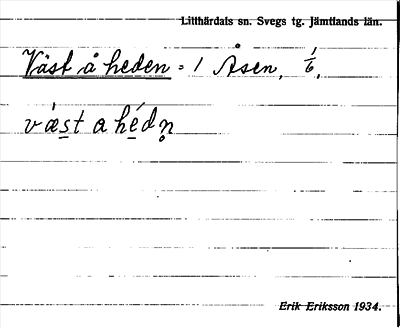 Litthärdals sn. Svegs tg. Jämtlands län.
Väst å heden = 1 Åsen, b.
væst a hédn̥
Erik Eriksson 1934.